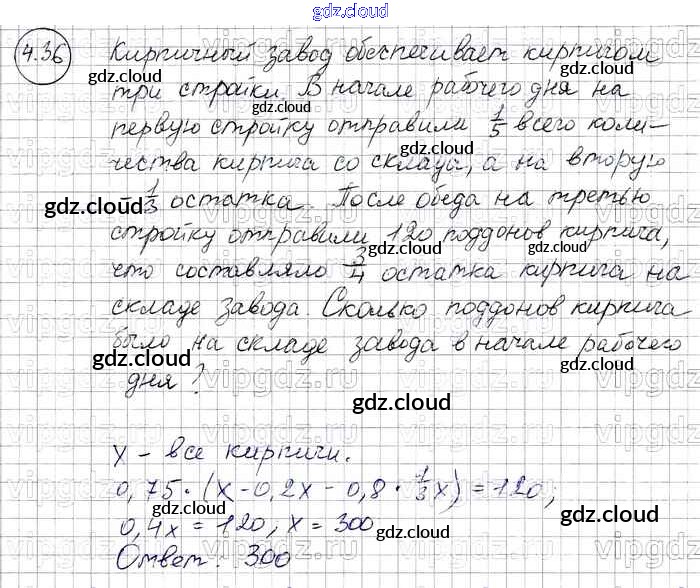 gdz.cloud
4.36 Кирпичный завод обеспечивает кирпичом
три стройки. В начале рабочего дня на
первую стройку отправили 1/5 всего коли-
чества кирпича со склада, а на вторую
– 1/3 остатка. После обеда на третью
стройку отправили 120 поддонов кирпича,
что составляло 3/4 остатка кирпича на
складе завода. Сколько поддонов кирпича
было на складе завода в начале рабочего
дня?
x – все кирпичи.
0,75 · (x – 0,2x – 0,8 · 1/3 x) = 120;
0,4x = 120, x = 300
Ответ: 300
gdz.cloud